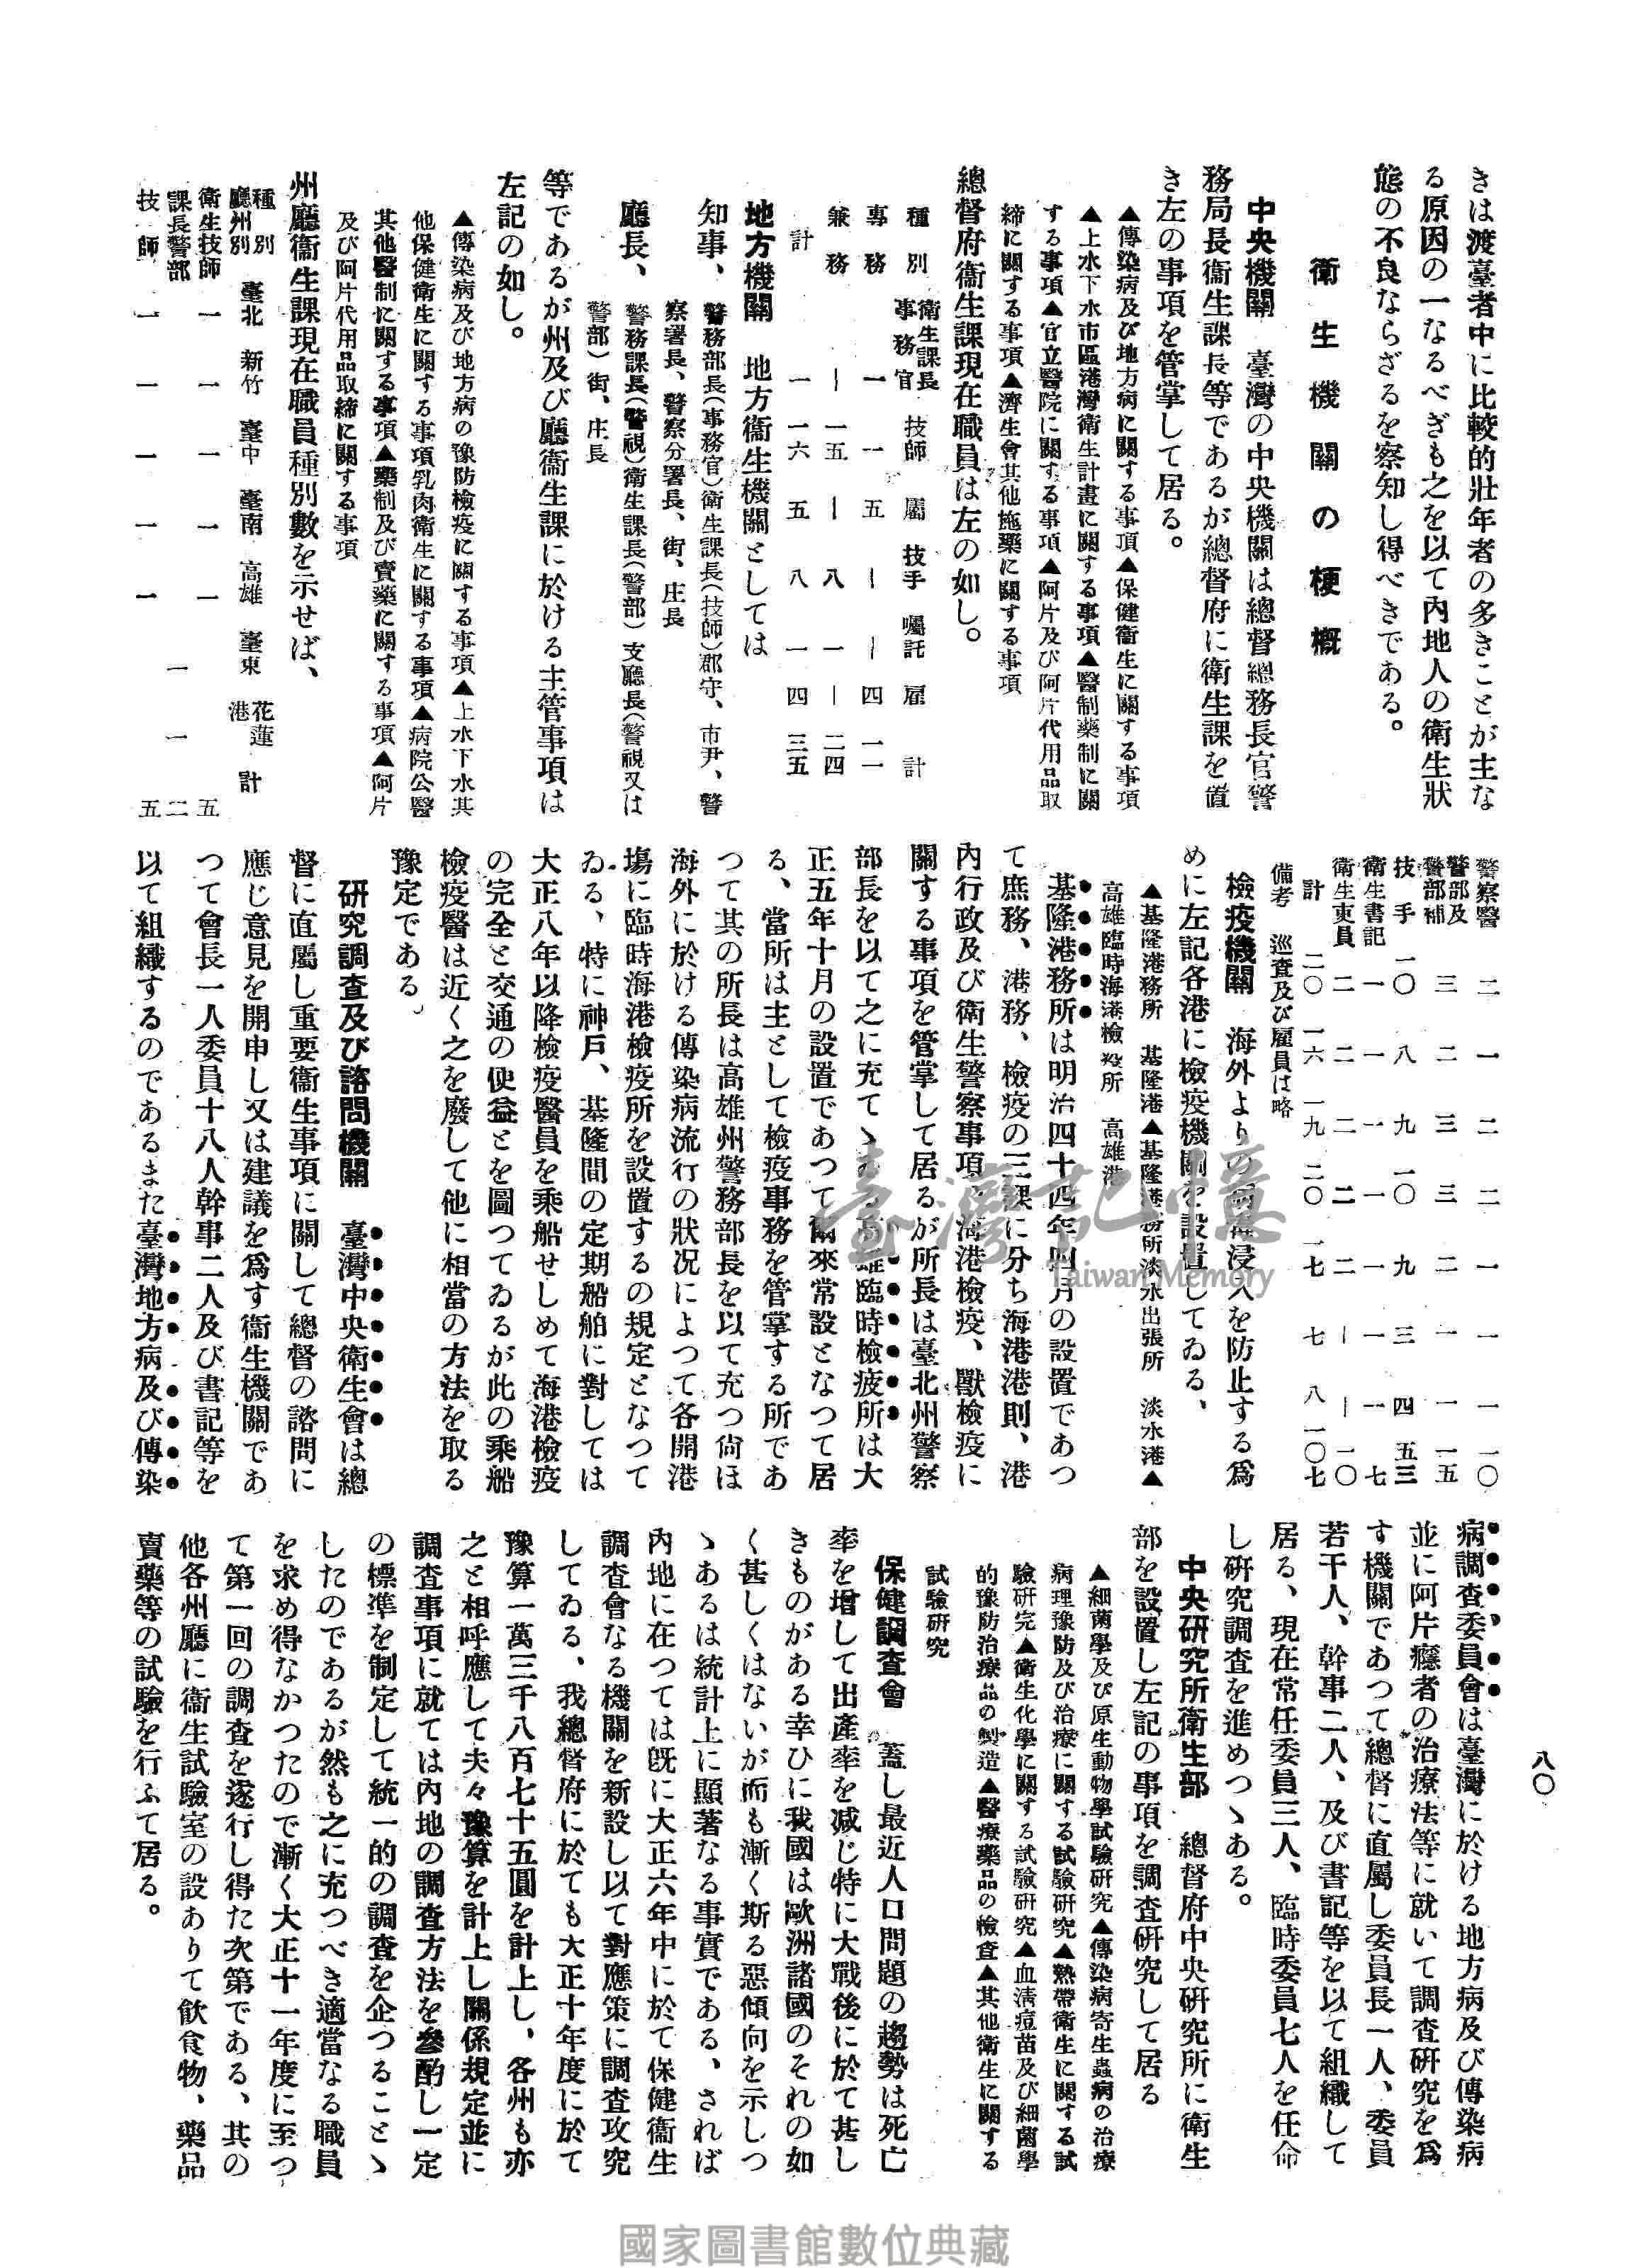 きは渡臺者中に比較的壯年者の多きことが主な
る原因の一なるべぎも之を以て內地人の衛生狀
態の不良ならざるを察知し得べきである。
衛生機關の梗概
中央機關　臺灣の中央機關は總督總務長官警
務局長衛生課長等であるが總督府に衛生課を置
き左の事項を管掌して居る。
▲傳染病及び地方病に關する事項▲保健衛生に關する事項
▲上水下水市區港灣衛生計畫に關する事項▲醫制藥制に關
する事項▲官立醫院に關する事項▲阿片及び阿片代用品取
締に關する事項▲濟生會其他施藥に關する事項
總督府衛生課現在職員は左の如し。
種別　衛生課長事務官　技師　屬　技手　囑託　雇　計
專務　一　一　五　ー　ー　四　一一
兼務　ー　一五　ー　八　一　ー　二四
計　一　一六　五　八　一　四　三五
地方機關　地方衛生機關としては
知事、警務部長(事務官)衛生課長(技師)郡守、市尹、警
察署長、警察分署長、街、庄長
廳長、警務課長(警視)衛生課長(警部)支廳長(警視又は
警部)街、庄長
等であるが州及び廳衛生課に於ける主管事項は
左記の如し。
▲傳染病及び地方病の豫防檢疫に關する事項▲上水下水其
他保健衛生に關する事項乳肉衛生に關する事項▲病院公醫
其他醫制に關する事項▲藥制及び賣藥に關する事項▲阿片
及び阿片代用品取締に關する事項
州廳衛生課現在職員種別數を示せば、
種別　廳州別　臺北　新竹　臺中　臺南　高雄　臺東　花蓮港　計
衛生技師　一　一　一　一　一　五
課長警部　一　一　二
技師　一　一　一　一　一　五
警察醫　二　一　二　二　一　一　一　一〇
警部及警部補　三　二　三　三　二　一　一　一五
技手　一〇　八　九　一〇　九　三　四　五三
衛生書記　一　一　一　一　一　一　一　七
衛生吏員　二　二　二　二　二　ー　ー　一〇
計　二〇　一六　一九　二〇　一七　七　八　一〇七
備考　巡査及び雇員は略
檢疫機關　海外よりの病毒浸入を防止する爲
めに左記各港に檢疫機關を設置してゐる、
▲基隆港務所　基隆港▲基隆港務所淡水出張所　淡水港▲
高雄臨時海港檢疫所　高雄港
基隆港務所は明治四十四年四月の設置であつ
て庶務、港務、檢疫の三課に分ち海港港則、港
內行政及び衛生警察事項、海港檢疫、獸檢疫に
關する事項を管掌して居るが所長は臺北州警察
部長を以て之に充てゝゐる高雄臨時檢疲所は大
正五年十月の設置であつて爾來常設となつて居
る、當所は主として檢疫事務を管掌する所であ
つて其の所長は高雄州警務部長を以て充つ尙ほ
海外に於ける傳染病流行の狀况によつて各開港
塲に臨時海港檢疫所を設置するの規定となつて
ゐる、特に神戶、基隆間の定期船舶に對しては
大正八年以降檢疫醫員を乘船せしめて海港檢疫
の完全と交通の便益とを圖つてゐるが此の乘船
檢疫醫は近く之を廢して他に相當の方法を取る
豫定である。
研究調査及び諮問機關　臺灣中央衛生會は總
督に直屬し重要衛生事項に關して總督の諮問に
應じ意見を開申し又は建議を爲す衛生機關であ
つて會長一人委員十八人幹事二人及び書記等を
以て組織するのであるまた臺灣地方病及び傳染
病調査委員會は臺灣に於ける地方病及び傳染病
並に阿片癮者の治療法等に就いて調査硏究を爲
す機關であつて總督に直屬し委員長一人、委員
若干人、幹事二人、及び書記等を以て組織して
居る、現在常任委員三人、臨時委員七人を任命
し硏究調査を進めつゝある。
中央研究所衛生部　總督府中央硏究所に衛生
部を設置し左記の事項を調査硏究して居る
▲細菌學及び原生動物學試驗硏究▲傳染病寄生蟲病の治療
病理豫防及び治療に關する試驗硏究▲熱帶衛生に關する試
驗硏究▲衛生化學に關する試驗硏究▲血淸痘苗及び細菌學
的豫防治療品の製造▲醫療藥品の檢査▲其他衛生に關する
試驗硏究
保健調査會　蓋し最近人口問題の趨勢は死亡
率を增して出產率を减じ特に大戰後に於て甚し
きものがある幸ひに我國は歐洲諸國のそれの如
く甚しくはないが而も漸く斯る惡傾向を示しつ
ゝあるは統計上に顯著なる事實である、されば
內地に在つては旣に大正六年中に於て保健衛生
調査會なる機關を新設し以て對應策に調査攻究
してゐる、我總督府に於ても大正十年度に於て
豫算一萬三千八百七十五圓を計上し、各州も亦
之と相呼應して夫々豫算を計上し關係規定並に
調査事項に就ては內地の調査方法を參酌し一定
の標準を制定して統一的の調査を企つることゝ
したのであるが然も之に充つべき適當なる職員
を求め得なかつたので漸く大正十一年度に至つ
て第一回の調査を遂行し得た次第である、其の
他各州廳に衛生試驗室の設ありて飮食物、藥品
賣藥等の試驗を行ふて居る。
八〇
臺灣記憶
Taiwan Memory
國家圖書館數位典藏